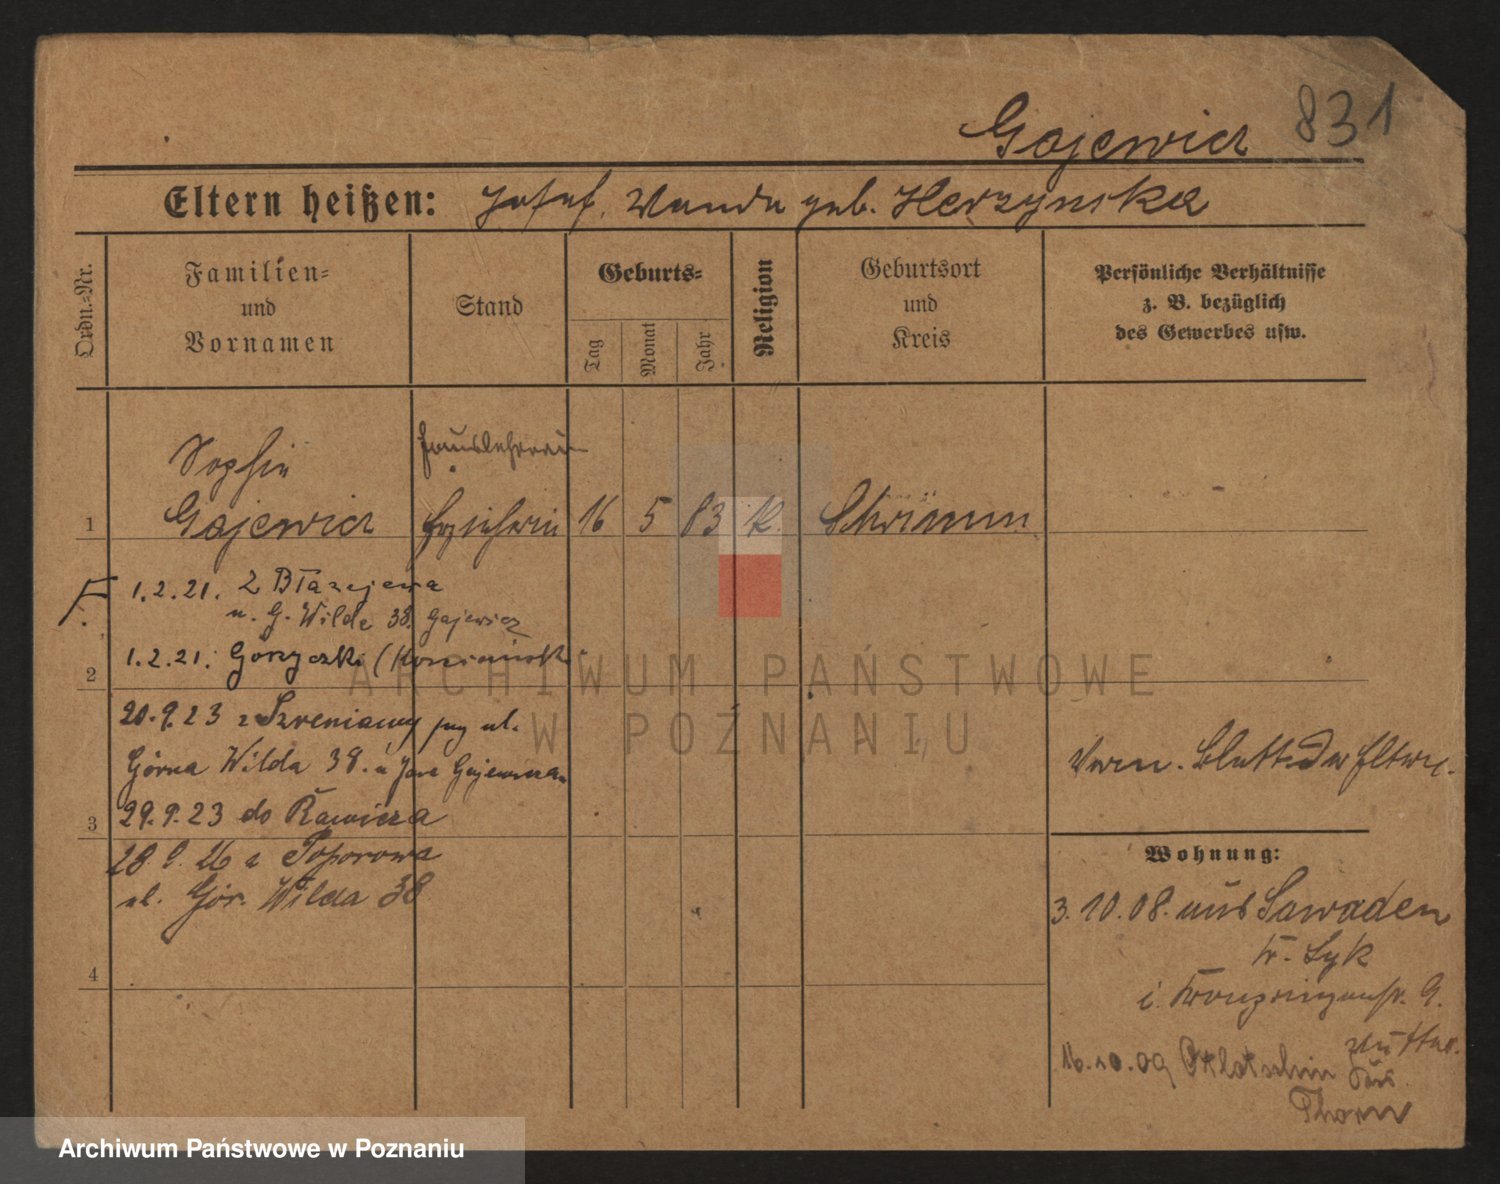 831
Gajewicz
Eltern heißen: Josef, Wanda geb. Herzynska
Ordn.-Nr.
Familien-
und
Vornamen
Stand
Geburts-
Tag
Monat
Jahr
Religion
Geburtsort
und
Kreis
Persönliche Verhältnisse
z. B. bezüglich
des Gewerbes usw.
Sophie
Hauslehrerin
1 Gajewicz Erzieherin 16 5 83 k. Schrimm
1.2.21. z Błażejewa
u. G. Wilda 38. Gajewicz
2 1.2.21. Gorzyczki
20.9.23 z Szreniawy ul.
Górna Wilda 38. u Gajewicza
3 29.9.23 do Rawicza
28 9. 26 z Toporowa
ul. Gór. Wilda 38
4
Verm. Blatt der Eltern.
Wohnung:
3.10.08. aus Sawaden
Kr. Lyk
i. Kronprinzenstr. 9.
16.10.09
Thorn
ARCHIWUM PAŃSTWOWE
W POZNANIU
Archiwum Państwowe w Poznaniu